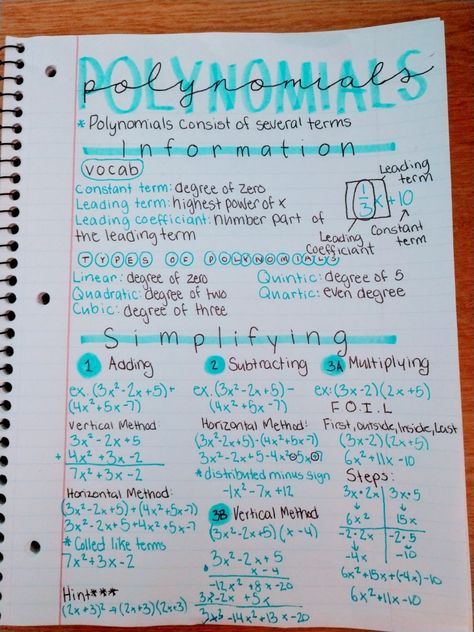 POLYNOMIALS
polynomials
* Polynomials consist of several terms
Information
vocab
Constant term: degree of zero
Leading term: highest power of x
Leading coefficiant: number part of
the leading term
Leading
term
1/3x+10
Leading
Coefficiant
Constant
term
TYPES OF POLYNOMIALS
Linear: degree of zero
Quadratic: degree of two
Cubic: degree of three
Quintic: degree of 5
Quartic: even degree
Simplifying
1 Adding
ex. (3x²-2x+5)+
(4x²+5x-7)
Vertical Method:
3x²-2x+5
+ 4x²+3x-2
7x²+3x-2
Horizontal Method:
(3x²-2x+5)+(4x²+5x-7)
3x²-2x+5+4x²+5x-7
* Colled like terms
7x²+3x-2
Hint***
(2x+3)²→(2x+3)(2x+3)
2 Subtracting
ex. (3x²-2x+5)-
(4x²+5x-7)
Horizontal Method:
(3x²-2x+5)-(4x²+5x-7)
3x²-2x+5-4x²-5x+7
* distributed minus sign
-1x²-7x+12
3B Vertical Method
(3x²-2x+5)(x-4)
3x²-2x+5
x-4
-12x²+8x-20
3x³-2x+5x
3x³-14x²+13x-20
3A Multiplying
ex: (3x-2)(2x+5)
F.O.I.L
First, outside, Inside, Last
(3x-2)(2x+5)
6x²+11x-10
Steps:
3x•2x 3x•5
6x² 15x
-2•2x -2•5
-4x -10
6x²+15x+(-4x)-10
6x²+11x-10